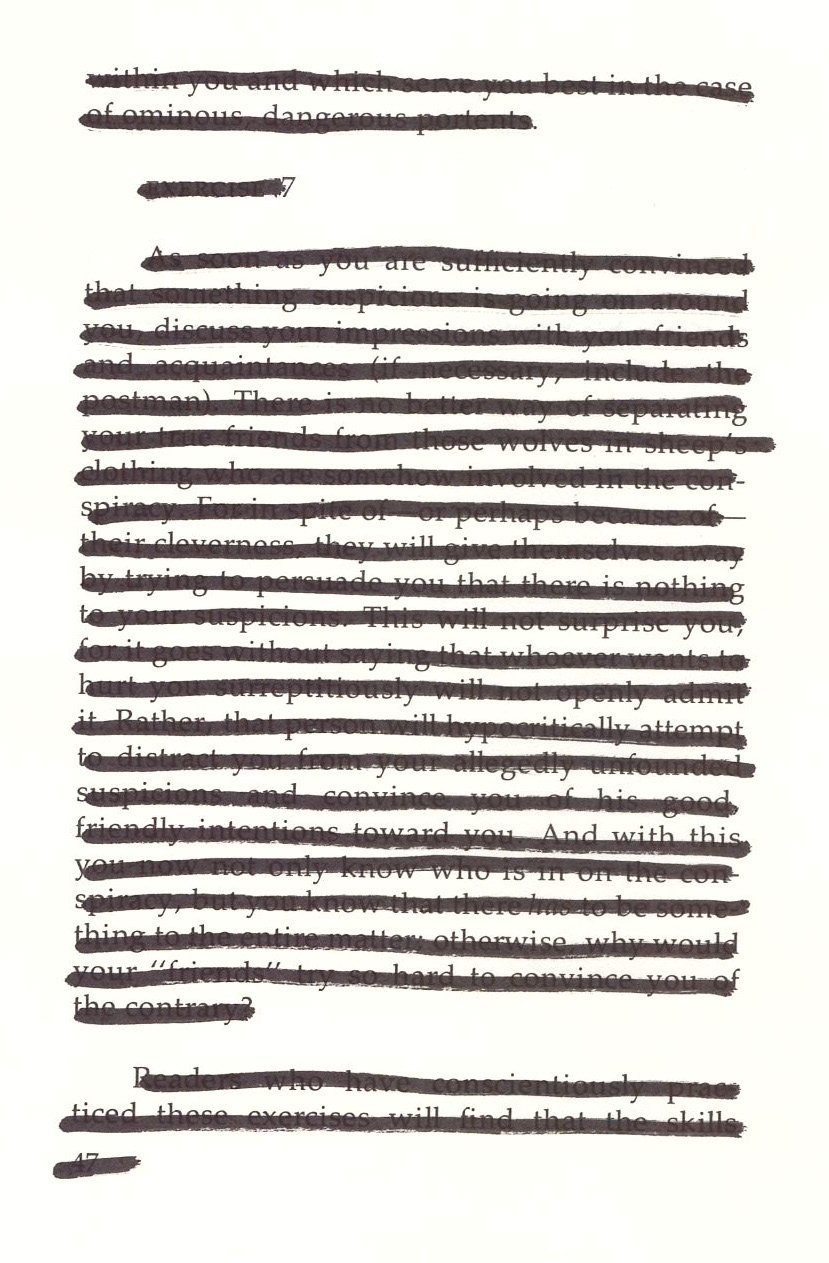 within you and which serve you best in the case
of ominous, dangerous portents.
EXERCISE 7
As soon as you are sufficiently convinced
that something suspicious is going on around
you, discuss your impressions with your friends
and acquaintances (if necessary, include the
postman). There is no better way of separating
your true friends from those wolves in sheep's
clothing who are somehow involved in the con-
spiracy. For in spite of—or perhaps because of—
their cleverness, they will give themselves away
by trying to persuade you that there is nothing
to your suspicions. This will not surprise you,
for it goes without saying that whoever wants to
hurt you surreptitiously will not openly admit
it. Rather, that person will hypocritically attempt
to distract you from your allegedly unfounded
suspicions and convince you of his good,
friendly intentions toward you. And with this
you now not only know who is in on the con-
spiracy, but you know that there has to be some-
thing to the entire matter; otherwise, why would
your "friends" try so hard to convince you of
the contrary?
Readers who have conscientiously prac-
ticed these exercises will find that the skills
47